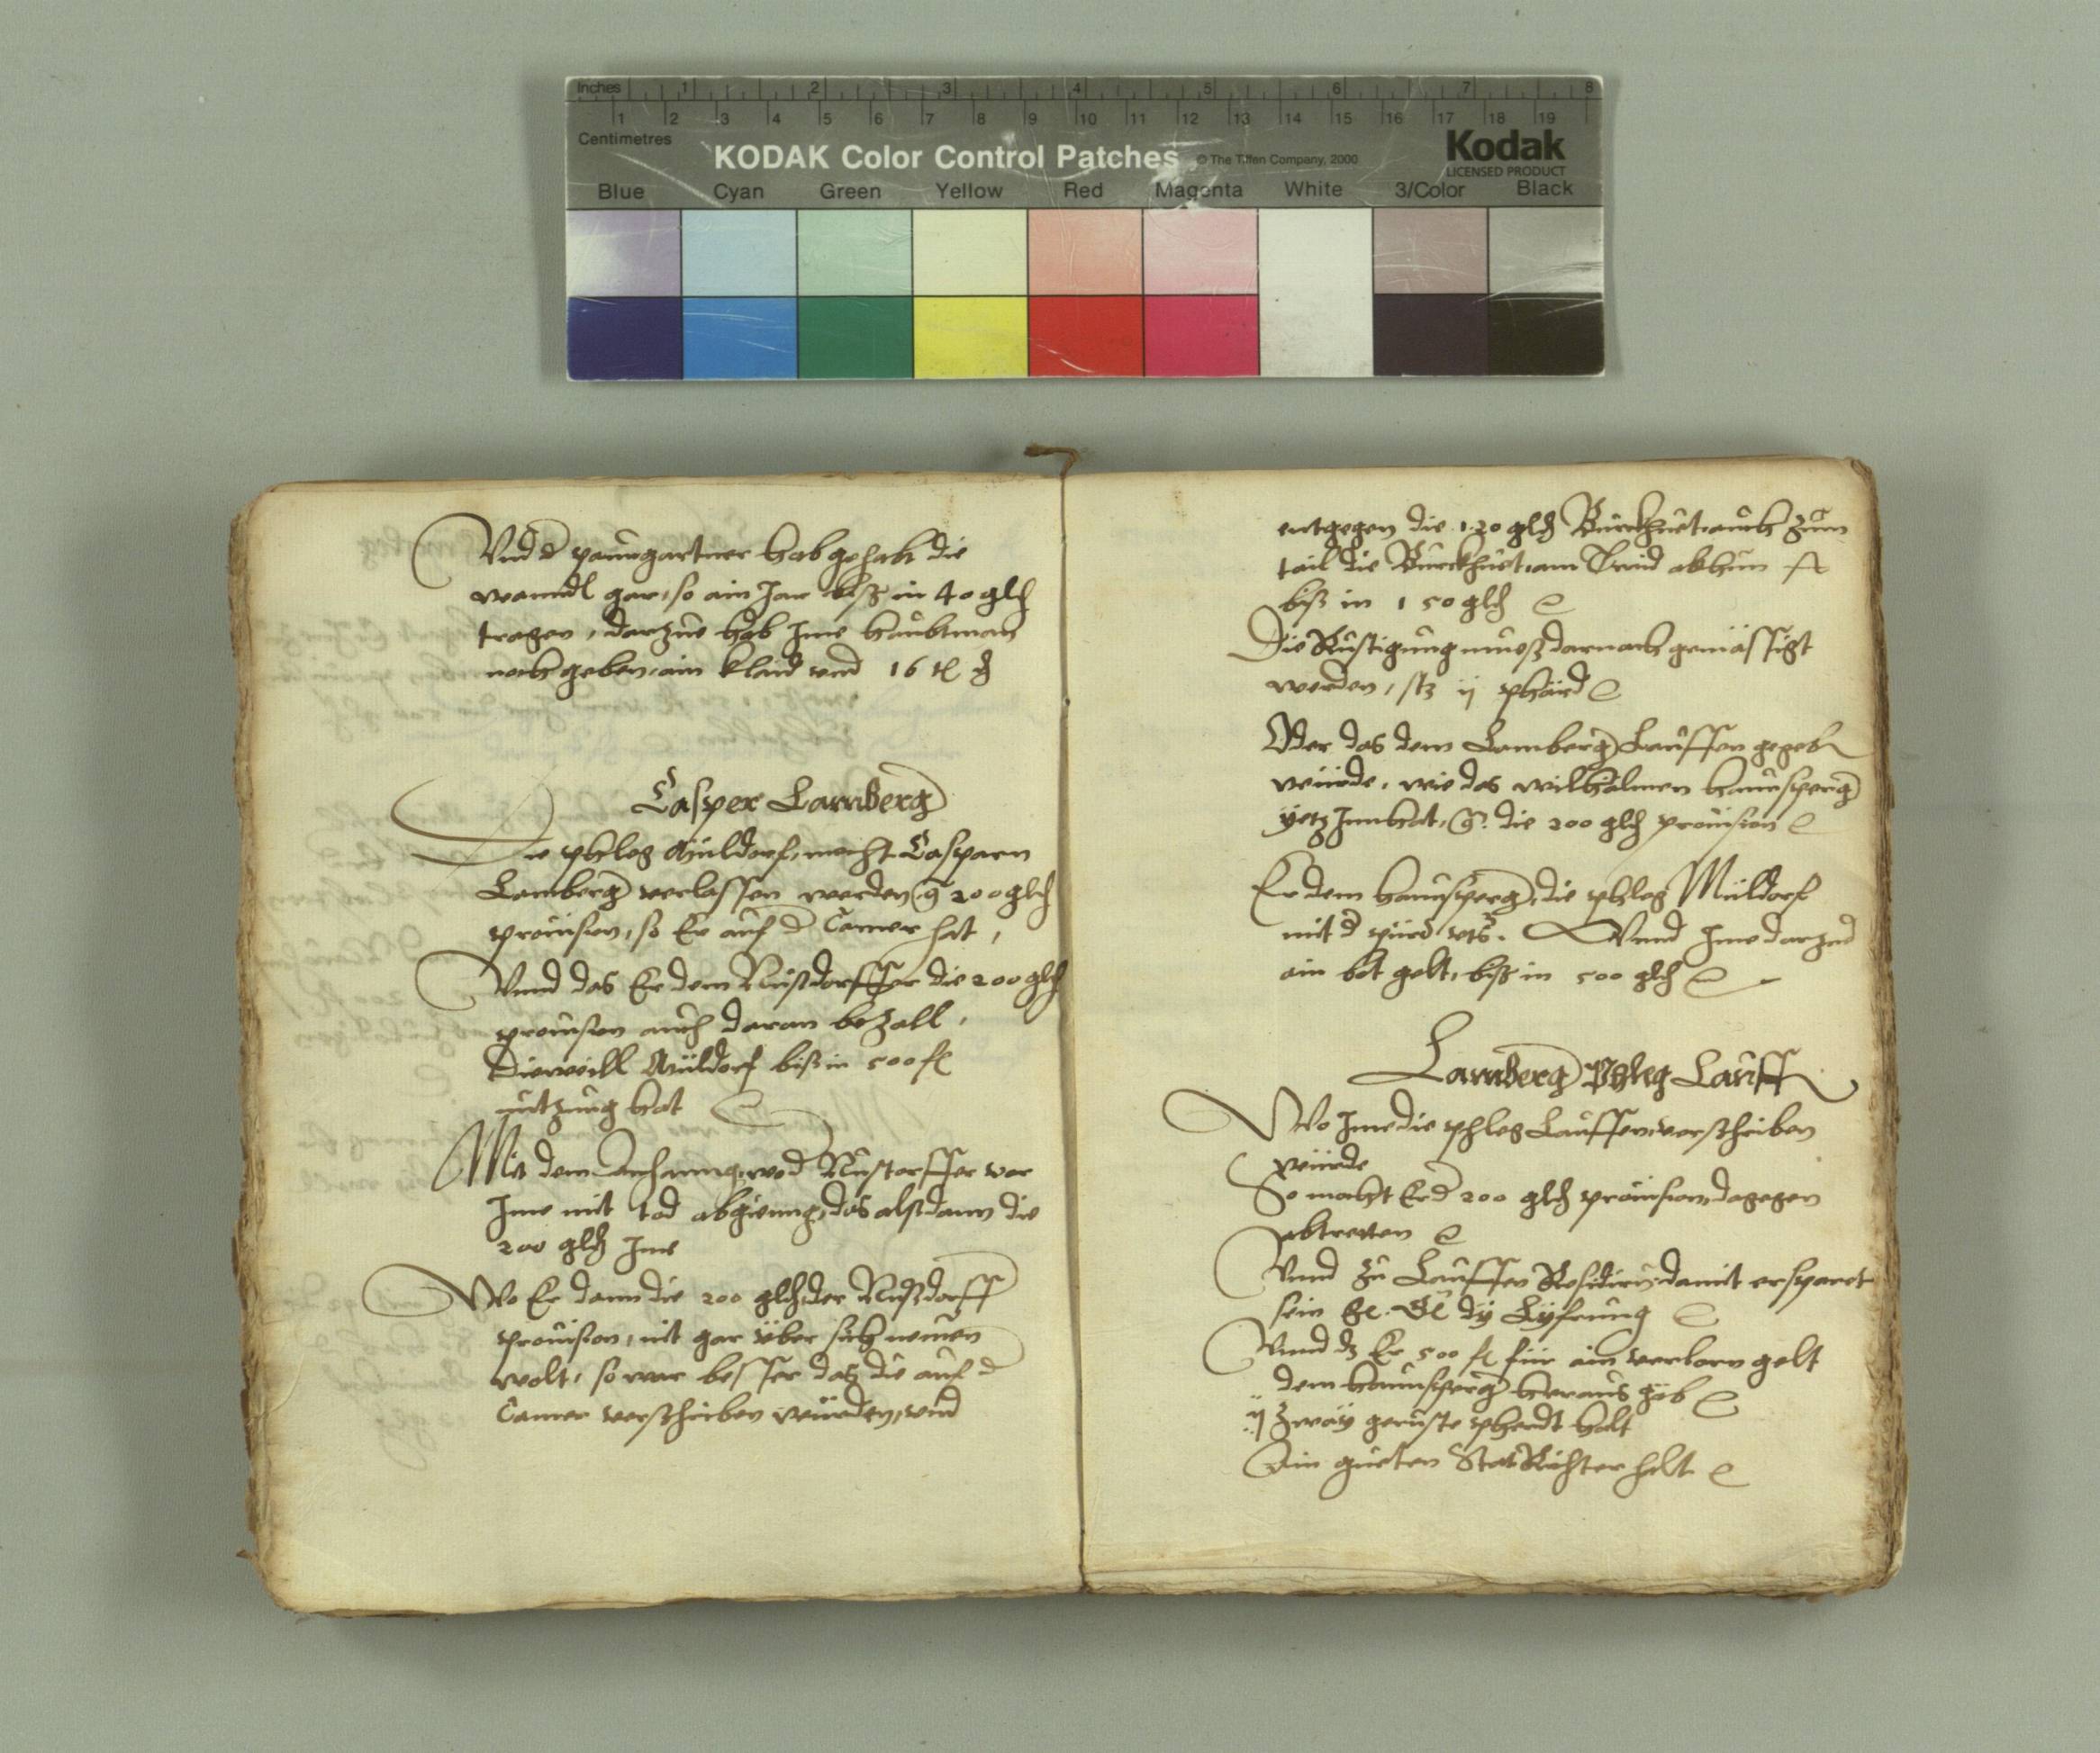 Inches 1 2 3 4 5 6 7 8
1 2 3 4 5 6 7 8 9 10 11 12 13 14 15 16 17 18 19
Centimetres
KODAK Color Control Patches © The Tiffen Company, 2000
Kodak
LICENSED PRODUCT
Blue Cyan Green Yellow Red Magenta White 3/Color Black
Vnd d paumgartner hab gehabt die
wanndl gar, so ain Jar biß in 40 gld
tragen, darzue hab Jme haubtman
noch geben ain klaid vnd 16 tl d
Casper Lamberg
Die phleg Müldorf, mecht Casparn
Lamberg verlassen werden g 200 gld
prouision, so Er auf d Camer hat,
Vnnd das Er dem Nußdorffer die 200 gld
prouision auch daran bezall,
Dieweill Müldorf biß in 500 fl
nutzung hat
Mit dem Anhanng, wo d Nustorffer vor
Jme mit tod abgienng, das alßdann die
200 gld Jme
Wo Er dann die 200 gld der Nußdorff
prouision, nit gar über sich nemen
wolt, so war besser das die auf d
Camer verschriben würden, vnd
entgegen die 120 gld Burckhuet, auch zum
tail die Burckhuet, am abthun
biß in 150 gld
Die Rüstigung mueß darnach gemässigt
werden, ij phärd
Oder das dem Lamberg Lauffen gegeben
würde, wie das wilhalmen haunsperg
yetz Jnnhat, g. die 200 gld prouision
Er dem haunsperg, die phleg Müldorf
mit d pürd Vnnd Jme darzue
ain bet gelt, biß in 500 gld
Lamberg Phleg Lauff
Wo Jme die phleg Lauffen verschriben
würde
So mecht Er d 200 gld prouision dagegen
abtretten
Vnnd zu Lauffen Residirn, damit ersparet
sein dy Lyfrung
Vnnd dz Er 500 fl für ain verlorn gelt
dem haunsperg heraus gäb
ij zway gerüste pherdt halt
Ain gueten StatRichter helt